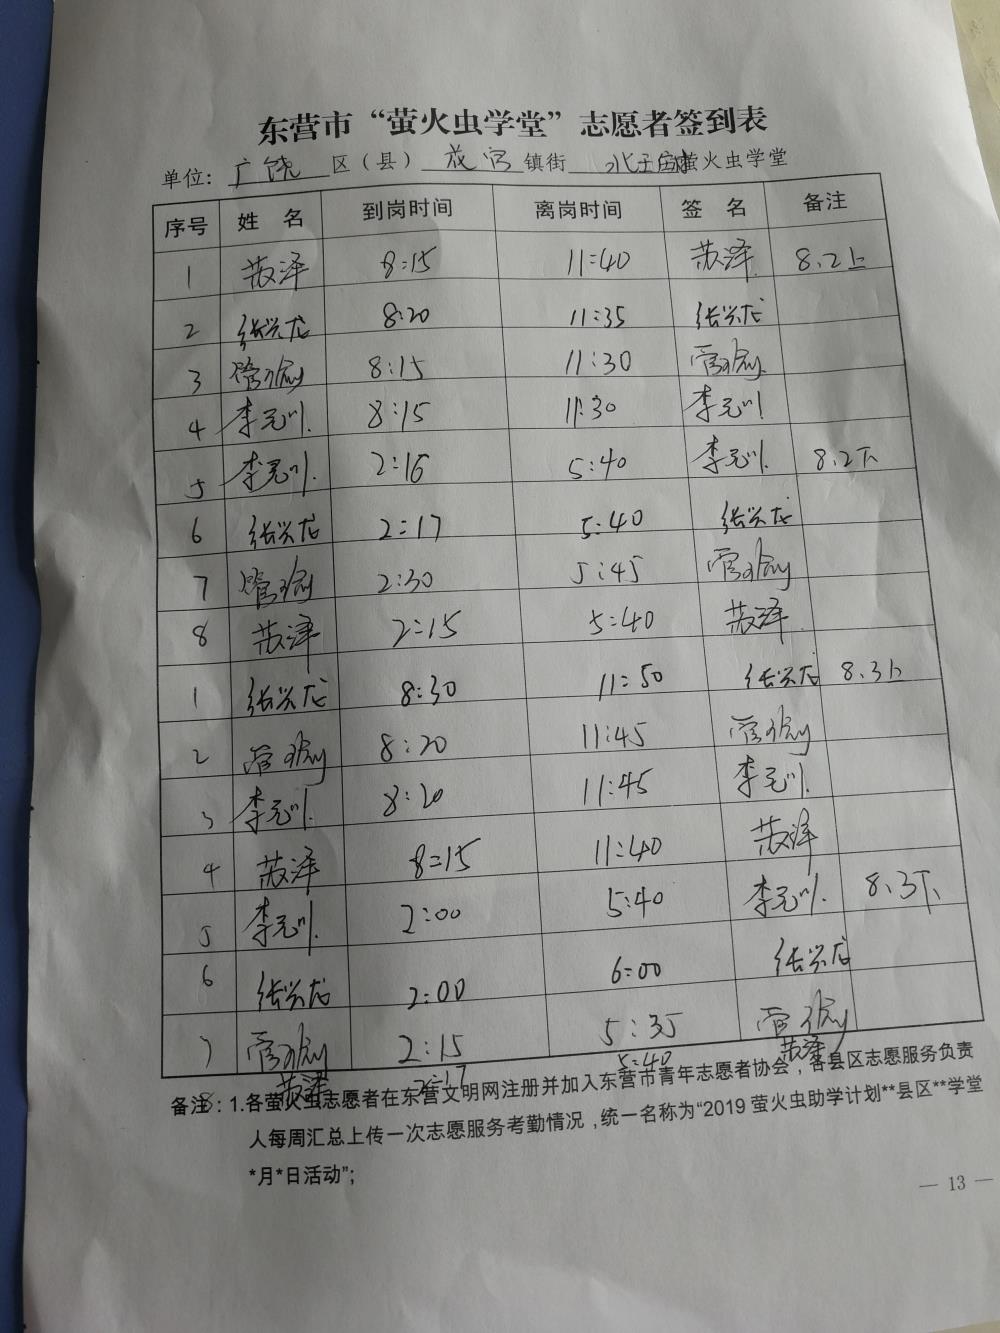 东营市“萤火虫学堂”志愿者签到表
单位：广饶区（县）镇街萤火虫学堂
序号 姓 名 到岗时间 离岗时间 签 名 备注
1 苏泽 8:15 11:40 苏泽 8.2上
2 张兴龙 8:20 11:35 张兴龙
3 管瑜 8:15 11:30 管瑜
4 李元 8:15 11:30 李元
5 李元 2:16 5:40 李元 8.2下
6 张兴龙 2:17 5:40 张兴龙
7 管瑜 2:30 5:45 管瑜
8 苏泽 2:15 5:40 苏泽
1 张兴龙 8:30 11:50 张兴龙 8.3上
2 管瑜 8:20 11:45 管瑜
3 李元 8:20 11:45 李元
4 苏泽 8:15 11:40 苏泽
5 李元 2:00 5:40 李元 8.3下
6 张兴龙 2:00 6:00 张兴龙
7 管瑜 2:15 5:35 管瑜
8 苏泽 2:17 5:40 苏泽
备注：1.各萤火虫志愿者在东营文明网注册并加入东营市青年志愿者协会，各县区志愿服务负责
人每周汇总上传一次志愿服务考勤情况，统一名称为“2019 萤火虫助学计划**县区**学堂
*月*日活动”；
— 13 —